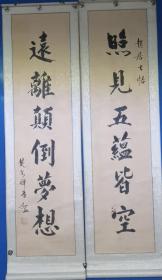 照見五蘊皆空
遠離顛倒夢想